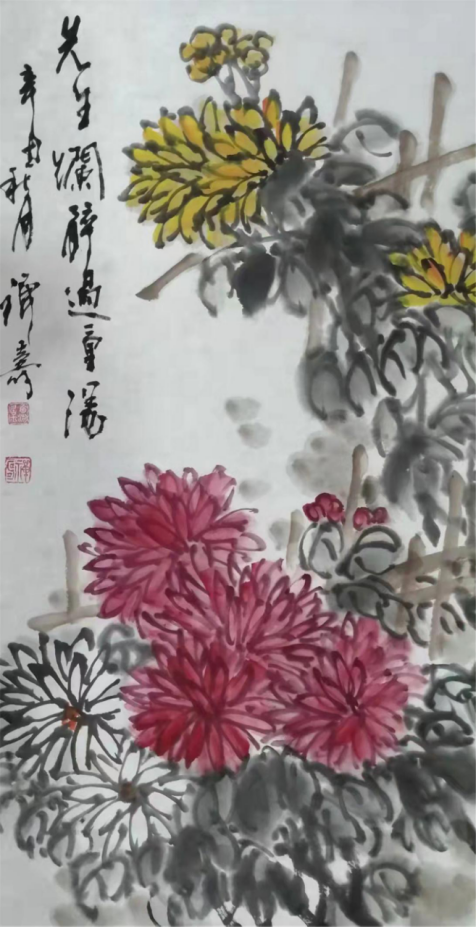 先生爛醉過重陽
辛丑秋月